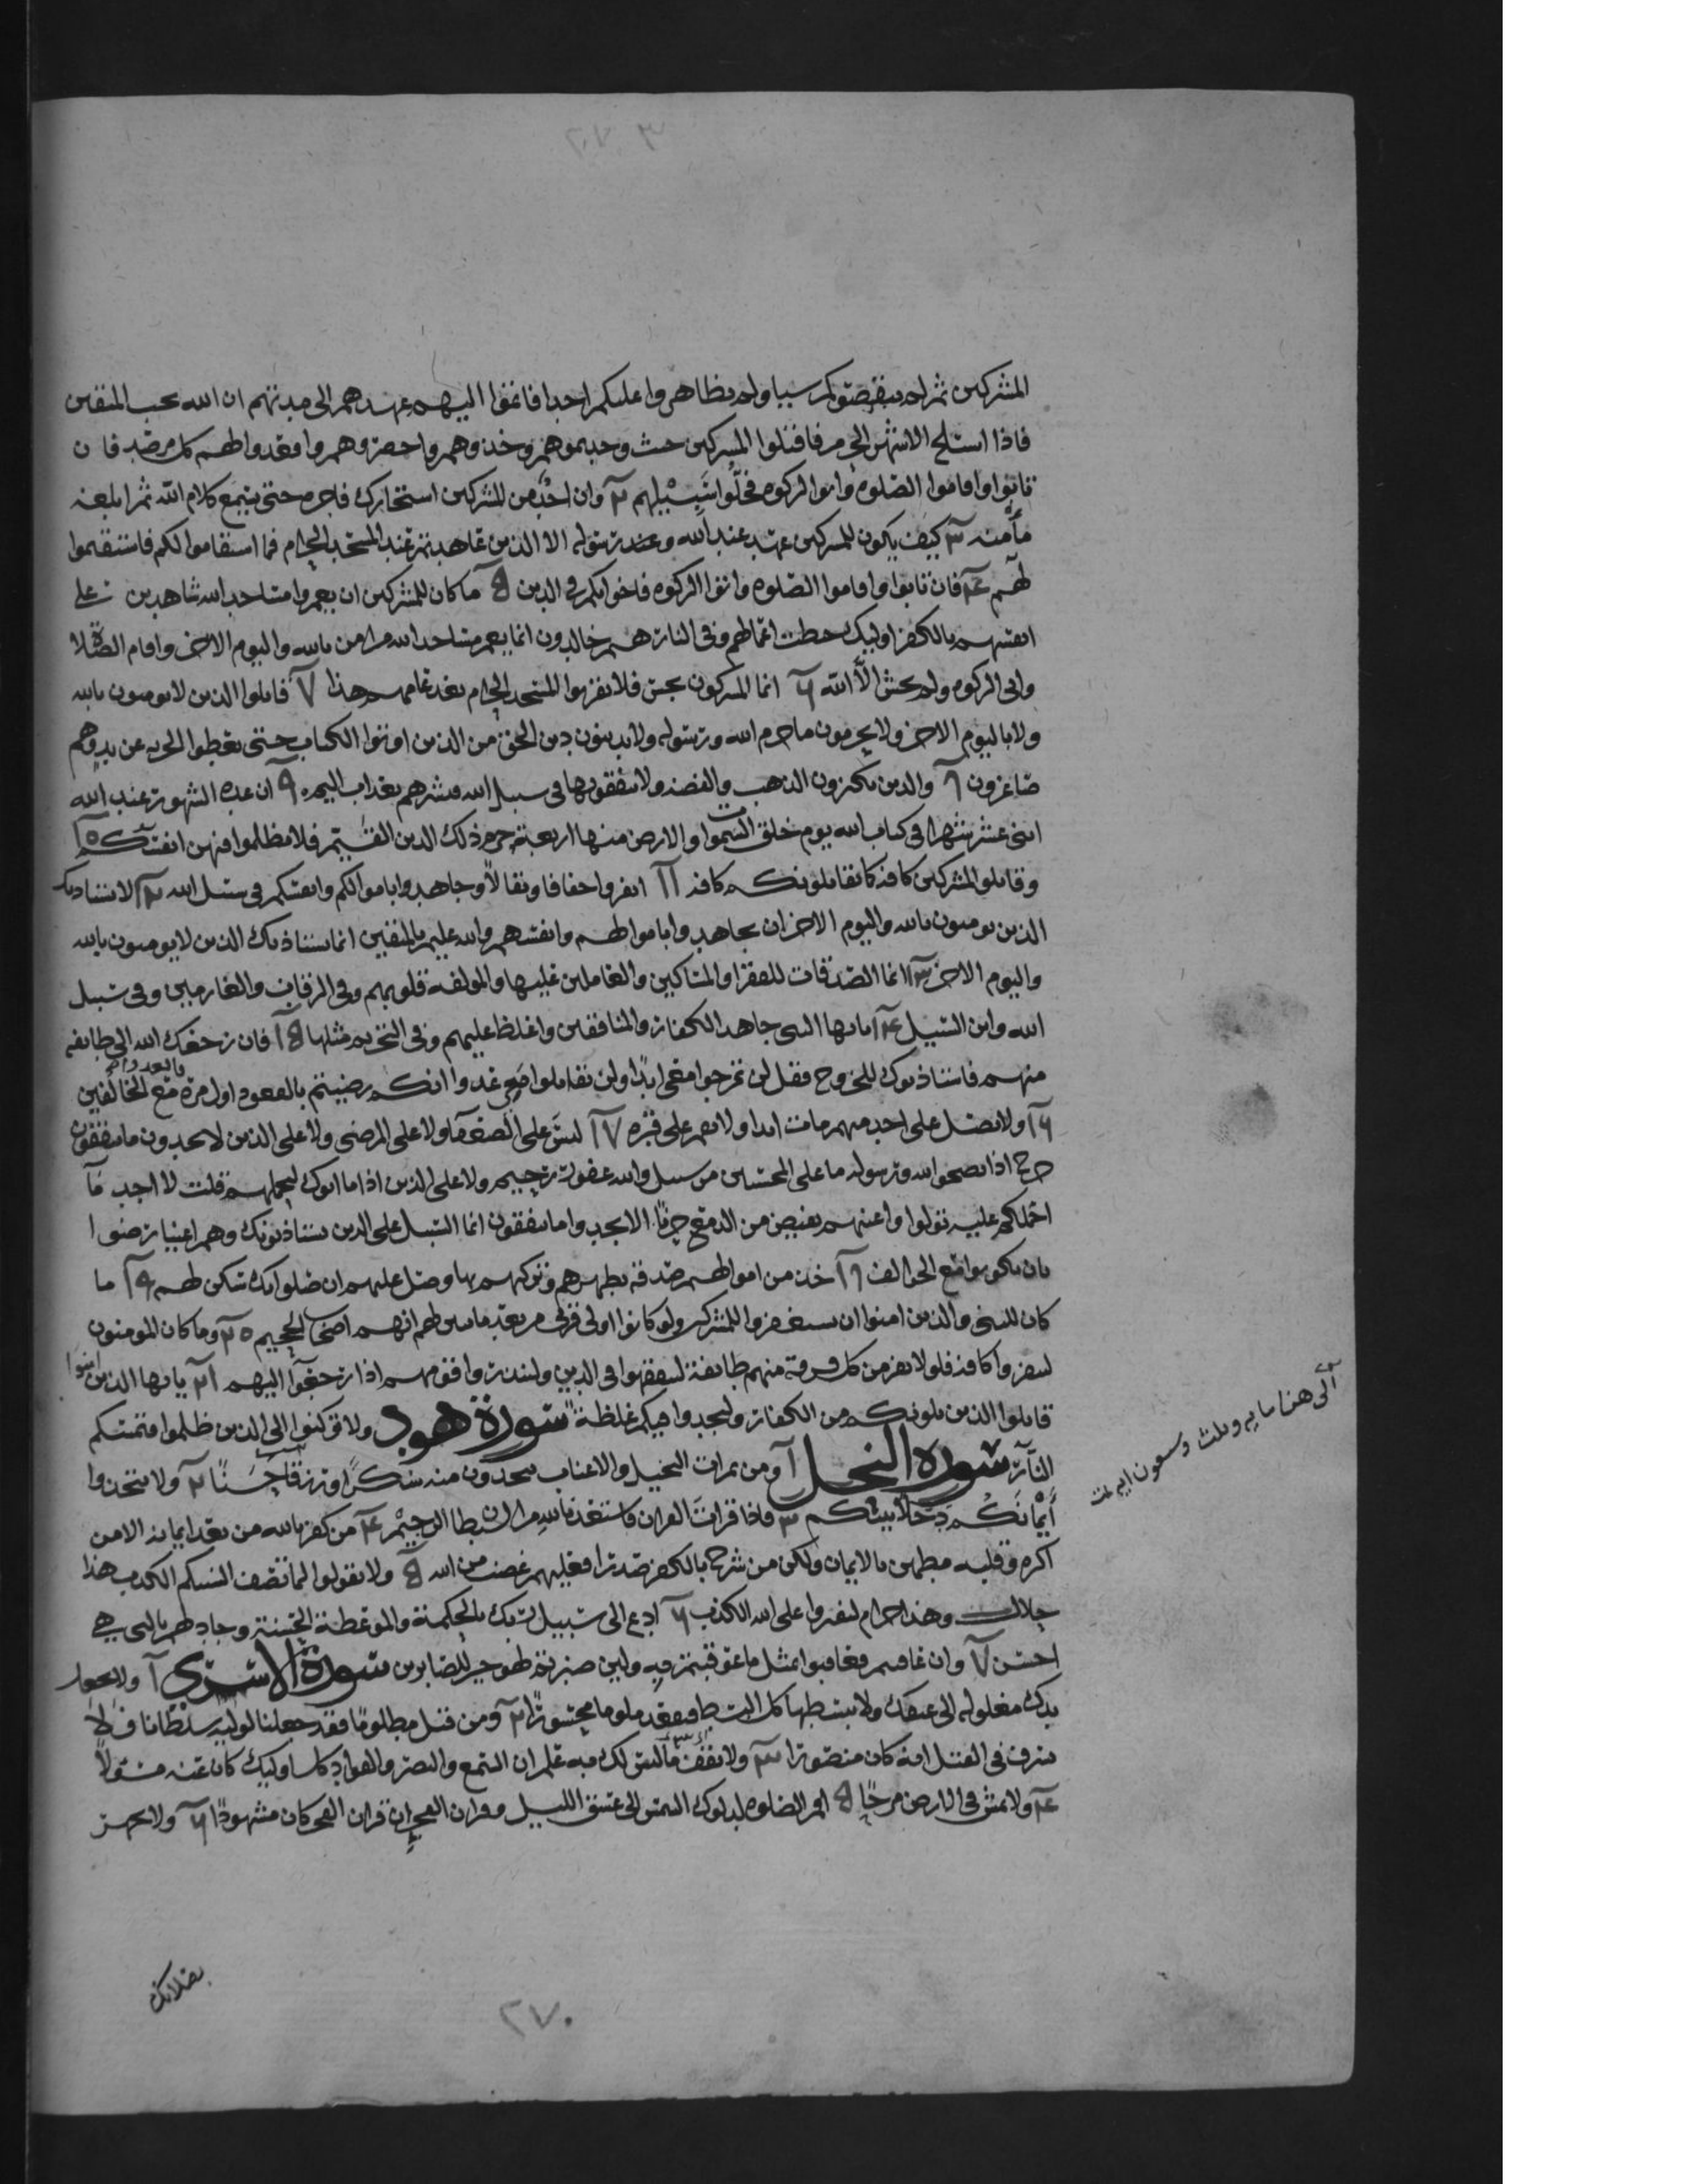 المشركين ثم لم ينقصوكم شيا ولم يظاهروا عليكم احدا فاتموا اليهم عهدهم الى مدتهم ان الله يحب المتقين
فاذا انسلخ الاشهر الحرم فاقتلوا المشركين حيث وجدتموهم وخذوهم واحصروهم واقعدوا لهم كل مرصد فان
تابوا واقاموا الصلوه واتوا الزكوه فخلوا سبيلهم ٢ وان احد من المشركين استجارك فاجره حتى يسمع كلام الله ثم ابلغه
مأمنه ٣ كيف يكون للمشركين عهد عند الله وعند رسوله الا الذين عاهدتم عند المسجد الحرام فما استقاموا لكم فاستقيموا
لهم ٤ فان تابوا واقاموا الصلوه واتوا الزكوه فاخوانكم في الدين ٥ ما كان للمشركين ان يعمروا مساجد الله شاهدين على
انفسهم بالكفر اوليك حبطت اعمالهم وفي النار هم خالدون انما يعمر مساجد الله من امن بالله واليوم الاخر واقام الصلاة
واتى الزكوه ولم يخش الا الله ٦ انما المشركون نجس فلا يقربوا المسجد الحرام بعد عامهم هذا ٧ قاتلوا الذين لا يومنون بالله
ولا باليوم الاخر ولا يحرمون ما حرم الله ورسوله ولا يدينون دين الحق من الذين اوتوا الكتاب حتى يعطوا الجزيه عن يد وهم
صاغرون ٨ والذين يكنزون الذهب والفضه ولا ينفقونها في سبيل الله فبشرهم بعذاب اليم ٩ ان عده الشهور عند الله
اثنى عشر شهرا في كتاب الله يوم خلق السموات والارض منها اربعة حرم ذلك الدين القيم فلا تظلموا فيهن انفسكم ١٠
وقاتلوا المشركين كافه كما يقاتلونكم كافه ١١ انفروا خفافا وثقالا وجاهدوا باموالكم وانفسكم في سبيل الله ١٢ لا يستاذنك
الذين يومنون بالله واليوم الاخر ان يجاهدوا باموالهم وانفسهم والله عليم بالمتقين انما يستاذنك الذين لا يومنون بالله
واليوم الاخر ١٣ انما الصدقات للفقرا والمساكين والعاملين عليها والمولفه قلوبهم وفي الرقاب والغارمين وفي سبيل
الله وابن السبيل ١٤ يايها النبى جاهد الكفار والمنافقين واغلظ عليهم وفي التحريم مثلها ١٥ فان رجعك الله الى طايفه
منهم فاستاذنوك للخروج فقل لن تخرجوا معي ابدا ولن تقاتلوا معي عدوا انكم رضيتم بالقعود اول مرة فاقعدوا مع الخالفين
١٦ ولا تصل على احد منهم مات ابدا ولا تقم على قبره ١٧ ليس على الضعفا ولا على المرضى ولا على الذين لا يجدون ما ينفقون
حرج اذا نصحوا الله ورسوله ما على المحسنين من سبيل والله غفور رحيم ولا على الذين اذا ما اتوك لتحملهم قلت لا اجد ما
احملكم عليه تولوا واعينهم تفيض من الدمع حزنا الا يجدوا ما ينفقون انما السبيل على الذين يستاذنونك وهم اغنيا رضوا
بان يكونوا مع الخوالف ١٨ خذ من اموالهم صدقه تطهرهم وتزكيهم بها وصل عليهم ان صلواتك سكن لهم ١٩ ما
كان للنبى والذين امنوا ان يستغفروا للمشركين ولو كانوا اولى قربى من بعد ما تبين لهم انهم اصحاب الجحيم ٢٠ وما كان المومنون
لينفروا كافه فلولا نفر من كل فرقة منهم طايفة ليتفقهوا في الدين ولينذروا قومهم اذا رجعوا اليهم ٢١ يايها الذين امنوا
قاتلوا الذين يلونكم من الكفار وليجدوا فيكم غلظة سورة هود ولا تركنوا الى الذين ظلموا فتمسكم
النار سورة النحل ١ ومن ثمرات النخيل والاعناب تتخذون منه سكرا ورزقا حسنا ٢ ولا تتخذوا
أيمانكم دخلا بينكم ٣ فاذا قرات القران فاستعذ بالله من الشيطان الرجيم ٤ من كفر بالله من بعد ايمانه الا من
اكره وقلبه مطمين بالايمان ولكن من شرح بالكفر صدرا فعليهم غضب من الله ٥ ولا تقولوا لما تصف السنتكم الكذب هذا
حلال وهذا حرام لتفتروا على الله الكذب ٦ ادع الى سبيل ربك بالحكمة والموعظة الحسنة وجادلهم بالتي هي
احسن ٧ وان عاقبتم فعاقبوا بمثل ما عوقبتم به ولين صبرتم لهو خير للصابرين سورة الاسرى ١ ولا تجعل
يدك مغلوله الى عنقك ولا تبسطها كل البسط فتقعد ملوما محسورا ٢ ومن قتل مظلوما فقد جعلنا لوليه سلطانا فلا
يسرف في القتل انه كان منصورا ٣ ولا تقف ما ليس لك به علم ان السمع والبصر والفواد كل اوليك كان عنه مسولا
٤ ولا تمش في الارض مرحا ٥ اقم الصلوه لدلوك الشمس الى غسق الليل وقران الفجر ان قران الفجر كان مشهودا ٦ ولا تجهر
الى هنا مايه وثلث وسعون ايه تمت
بصلاتك
٢٧٠